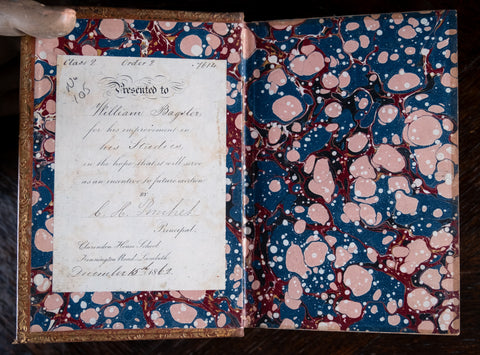 Class 2. Order 2
Presented to
William Bagster
for his improvement in
his Studies
in the hope that it will serve
as an incentive to future exertion
BY
Principal.
Clarendon House School
Kennington Road Lambeth
December 15th 1862.